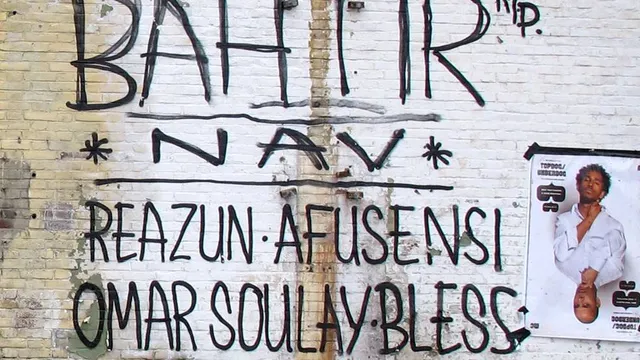 BAHTIR RIP.
* NAV *
REAZUN·AFUSENSI
OMAR SOULAY·BLESS
TOPDOG/
UNDERDOG